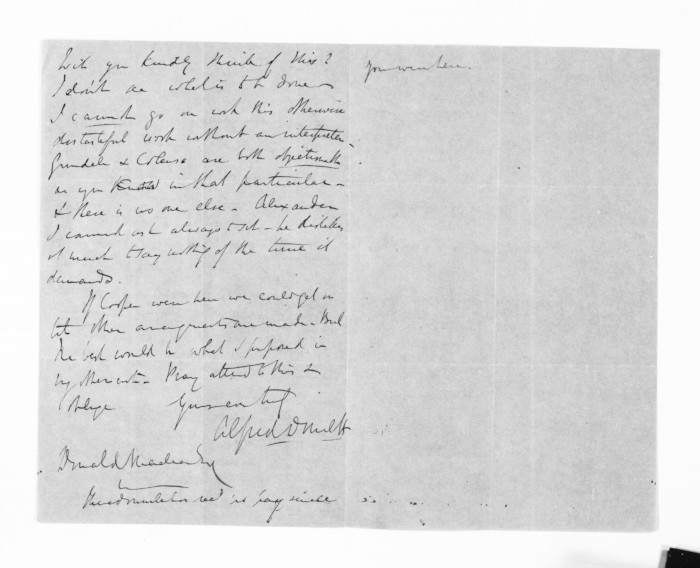 Will you kindly think of this?
I don't see what is to be done
I cannot go on with this otherwise
distasteful work without an interpreter -
Grindell & Colenso are both objectionable
as you know in that particular -
& there is no one else - Alexander
I cannot ask always to sit - he dislikes
it much to say nothing of the time it
demands.
If Cooper were here we could get on
but other arrangements are made - But
the best would be what I proposed in
my other note - Pray attend to this &
oblige Yours
Alfred Domett
Donald McLean Esq
you were here.